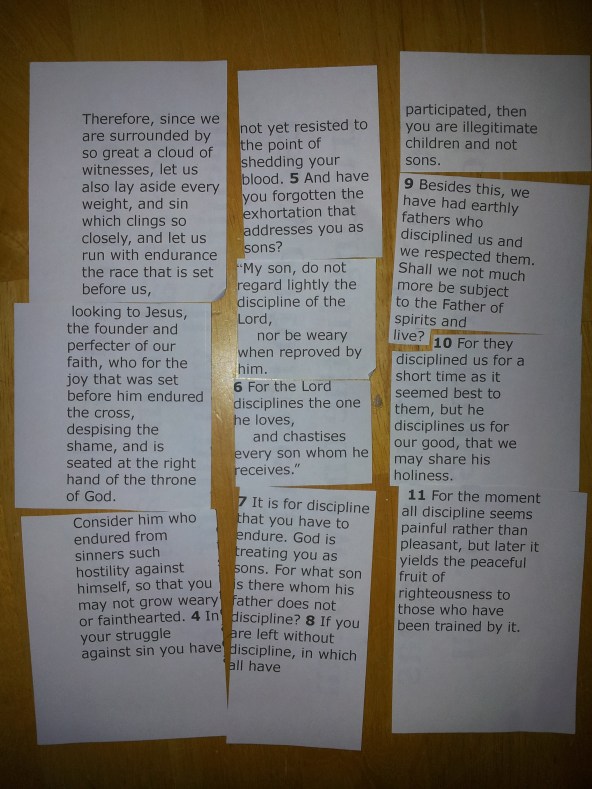 Therefore, since we
are surrounded by
so great a cloud of
witnesses, let us
also lay aside every
weight, and sin
which clings so
closely, and let us
run with endurance
the race that is set
before us,
looking to Jesus,
the founder and
perfecter of our
faith, who for the
joy that was set
before him endured
the cross,
despising the
shame, and is
seated at the right
hand of the throne
of God.
Consider him who
endured from
sinners such
hostility against
himself, so that you
may not grow weary
or fainthearted. 4 In
your struggle
against sin you have
not yet resisted to
the point of
shedding your
blood. 5 And have
you forgotten the
exhortation that
addresses you as
sons?
“My son, do not
regard lightly the
discipline of the
Lord,
nor be weary
when reproved by
him.
6 For the Lord
disciplines the one
he loves,
and chastises
every son whom he
receives.”
7 It is for discipline
that you have to
endure. God is
treating you as
sons. For what son
is there whom his
father does not
discipline? 8 If you
are left without
discipline, in which
all have
participated, then
you are illegitimate
children and not
sons.
9 Besides this, we
have had earthly
fathers who
disciplined us and
we respected them.
Shall we not much
more be subject
to the Father of
spirits and
live?
10 For they
disciplined us for a
short time as it
seemed best to
them, but he
disciplines us for
our good, that we
may share his
holiness.
11 For the moment
all discipline seems
painful rather than
pleasant, but later it
yields the peaceful
fruit of
righteousness to
those who have
been trained by it.